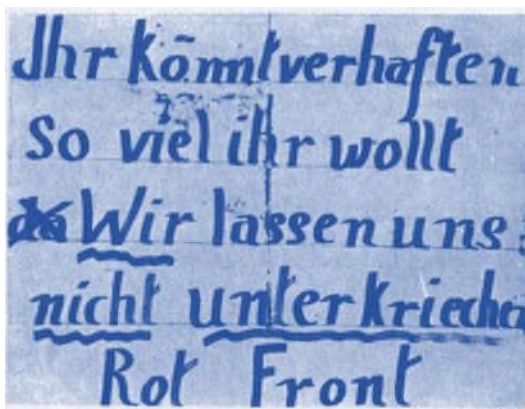 Ihr könntverhaften
so viel ihr wollt
Wir lassen uns
nicht unterkriechen
Rot Front